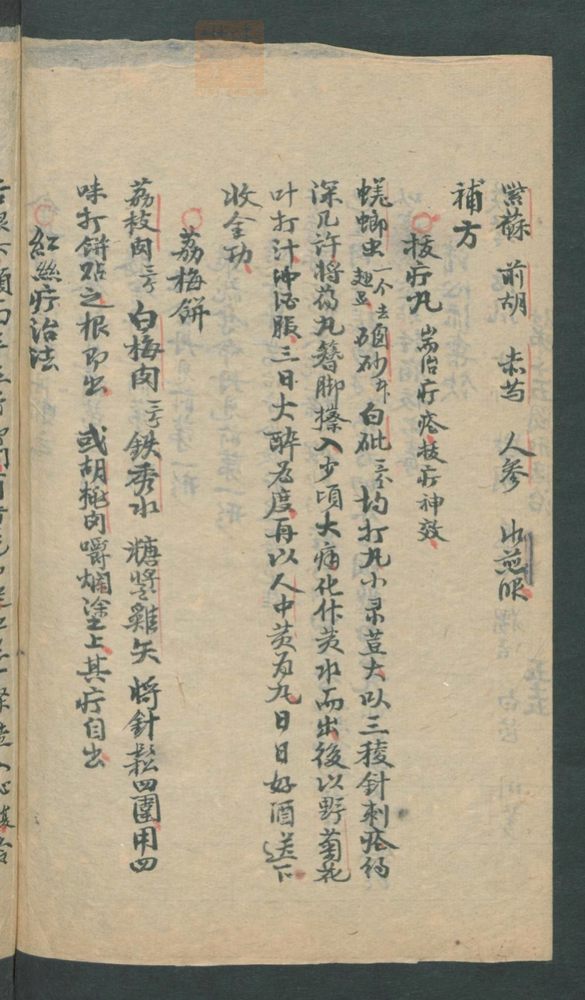 紫蘇　前胡　赤芍　人參　水煎服
補方
拔疔丸　耑治疔瘡拔疔神效
蜣螂虫一个去翅足　硇砂　白砒　均打丸小菉荳大以三稜針刺瘡約
深几許將药丸簪脚搽入少頃大痛化作黃水而出後以野菊花
叶打汁沖酒服三日大醉為度再以人中黃為丸日日好酒送下
收全功
荔梅餅
荔枝肉三个　白梅肉三个　鉄秀水　糖雞矢　將針鬆四圍用四
味打餅貼之根即出　或胡桃肉嚼爛塗上其疔自出
紅絲疔治法